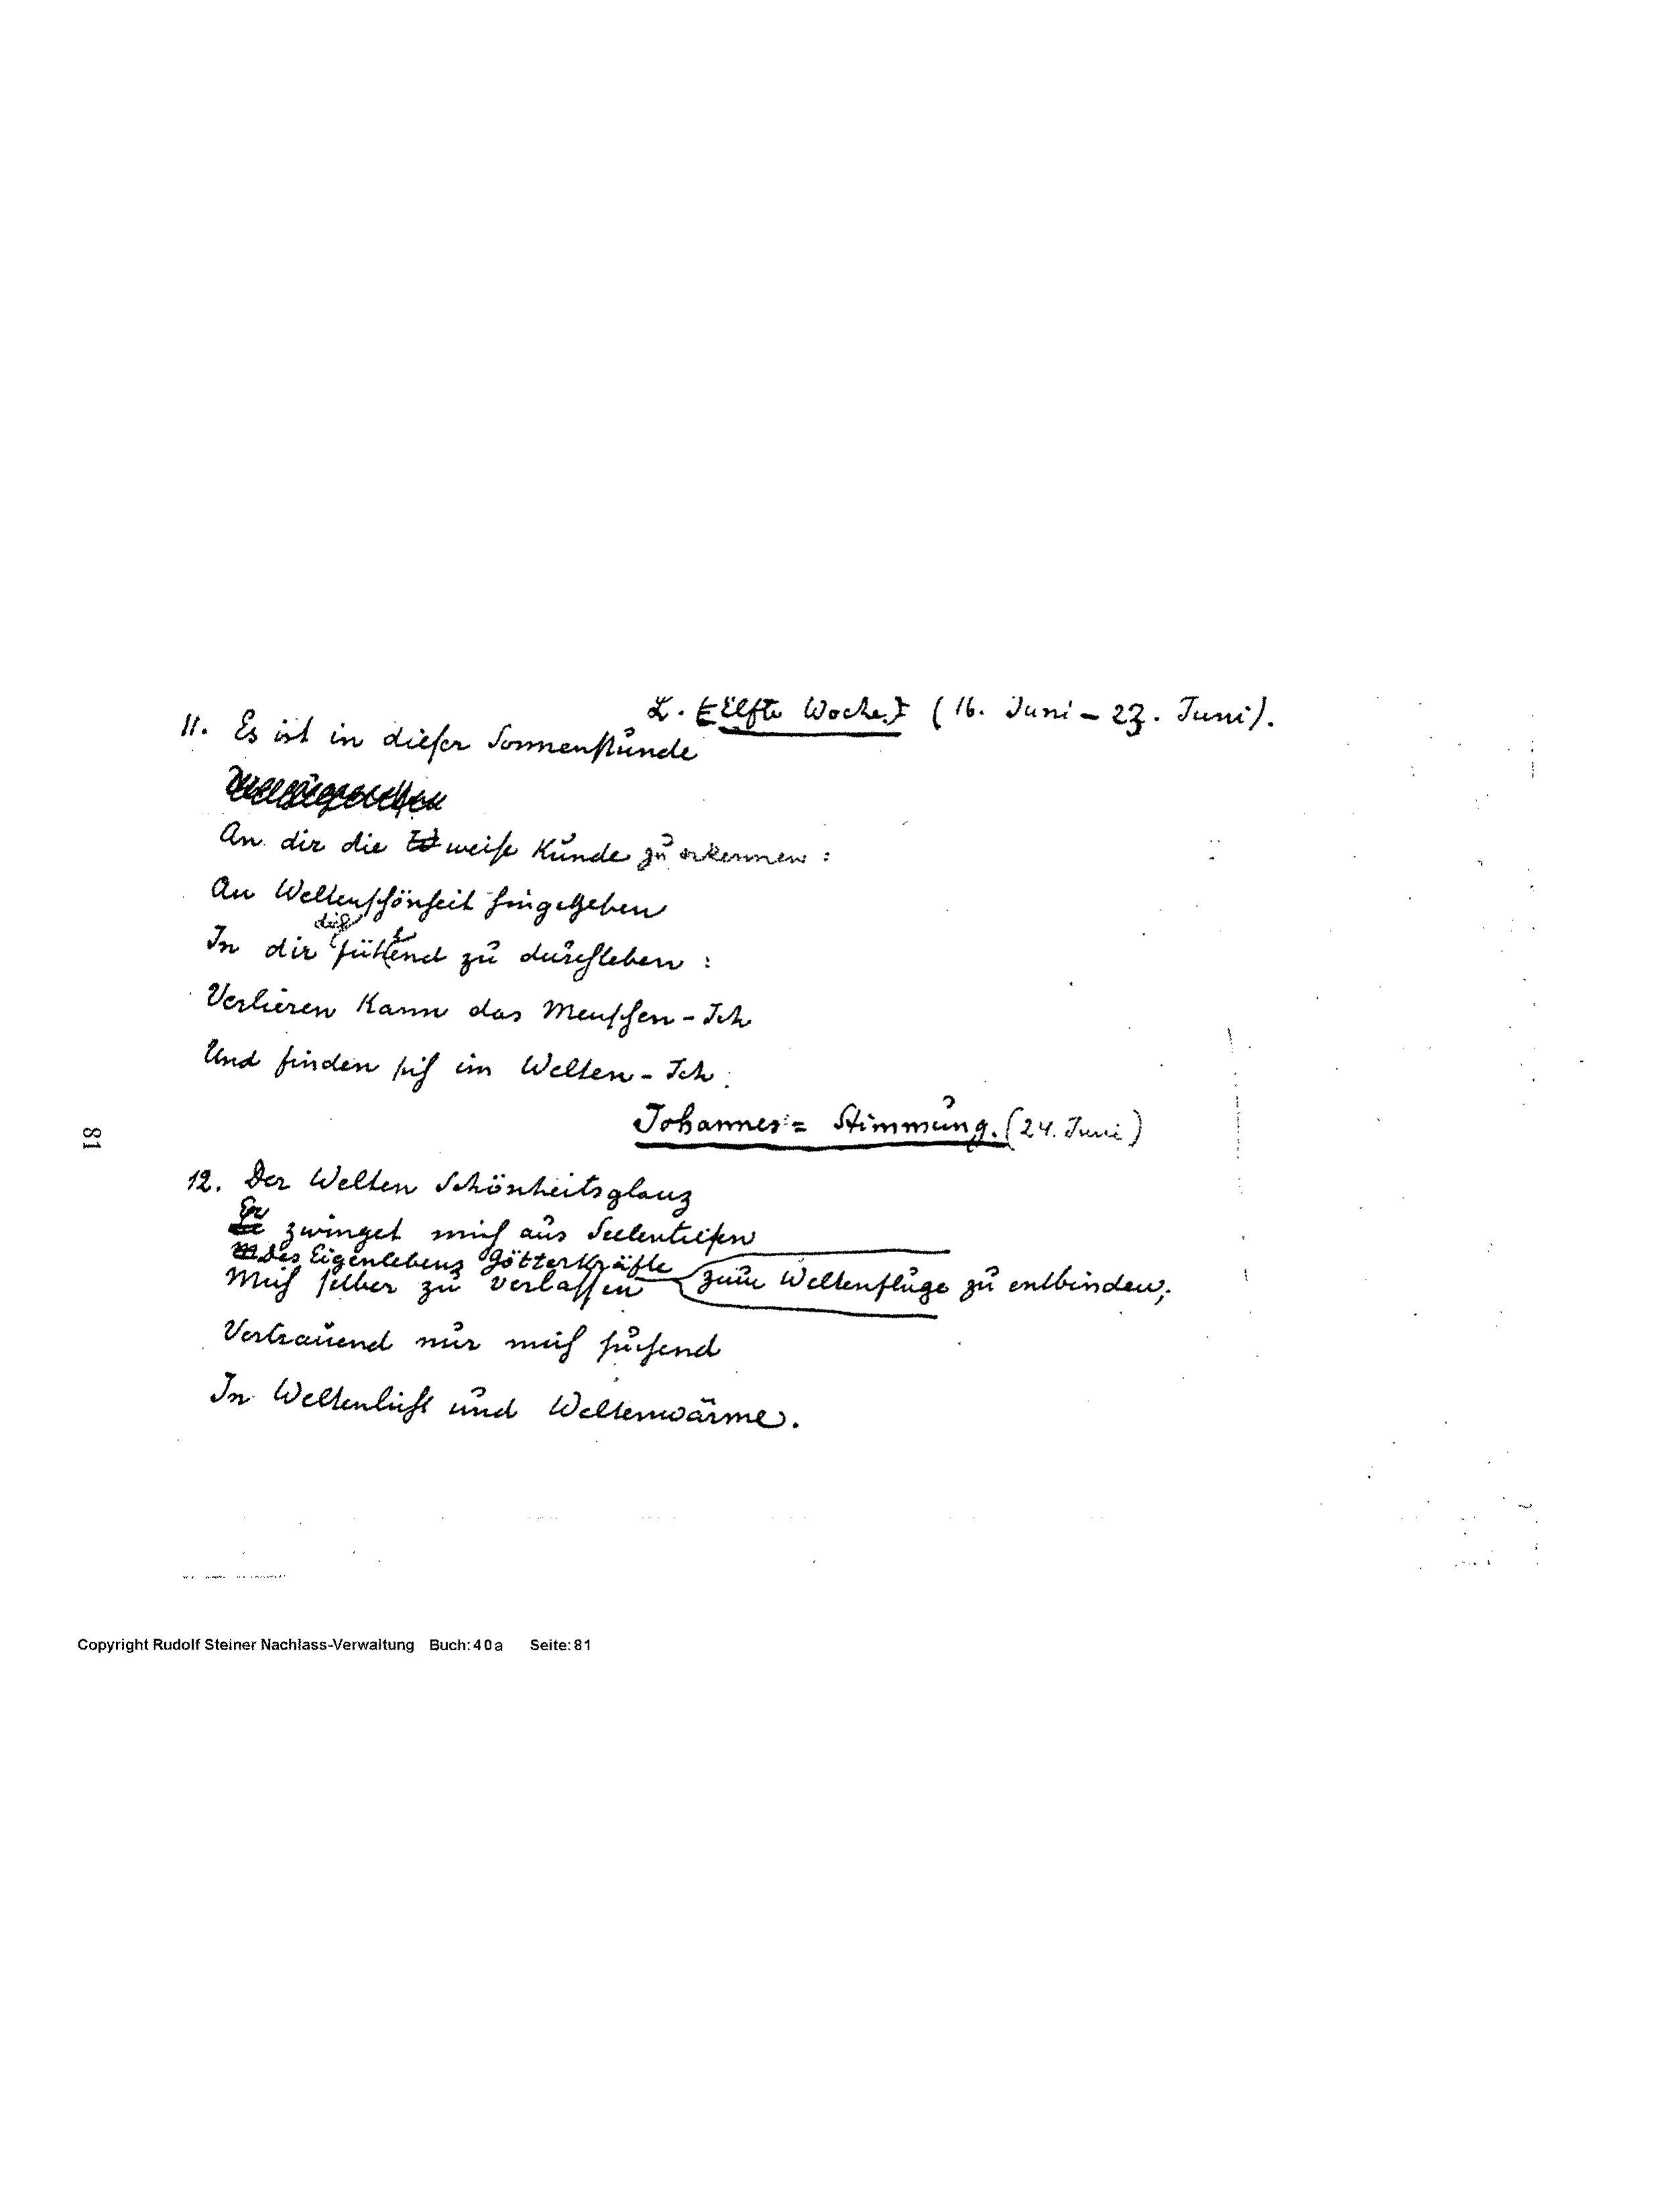 L. [Eilfte Woche.] (16. Juni – 23. Juni).
11. Es ist in dieser Sonnenstunde
An dir die weise Kunde zu erkennen:
An Weltenschönheit hingegeben
dich
In dir fühlend zu durchleben:
Verlieren kann das Menschen-Ich
Und finden sich im Welten-Ich.
Johannes= Stimmung. (24. Juni)
12. Der Welten Schönheitsglanz
Er
zwinget mich aus Seelentiefen
Des Eigenlebens Götterkräfte
Mich selber zu verlassen zum Weltenfluge zu entbinden;
Vertrauend nur mich suchend
In Weltenlicht und Weltenwärme.
81
Copyright Rudolf Steiner Nachlass-Verwaltung Buch: 40a Seite: 81